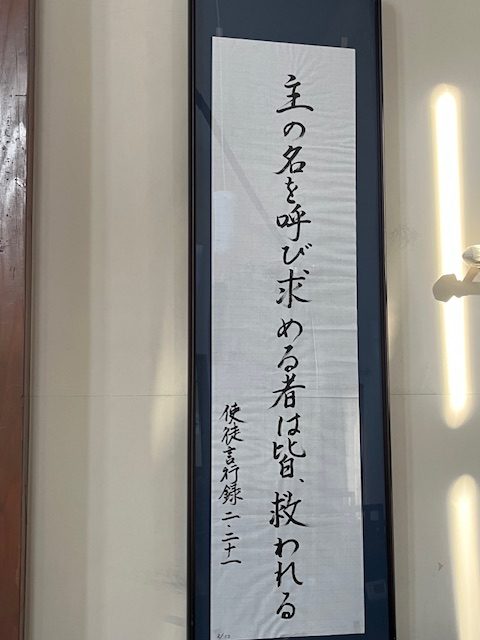 主の名を呼び求める者は皆、救われる
使徒言行録二・二十一